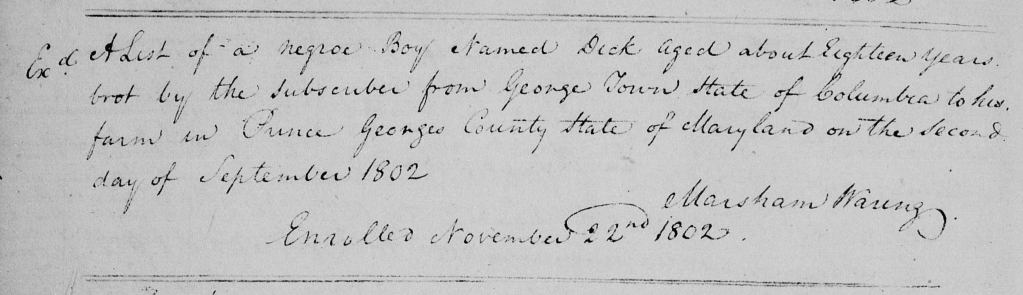 Exd. A List of a negroe Boy Named Dick aged about Eighteen years.
brot by the Subscriber from George Town State of Columbia to his
farm in Prince Georges County State of Maryland on the Second
day of September 1802
Marsham Waring
Enrolled November 22nd 1802.